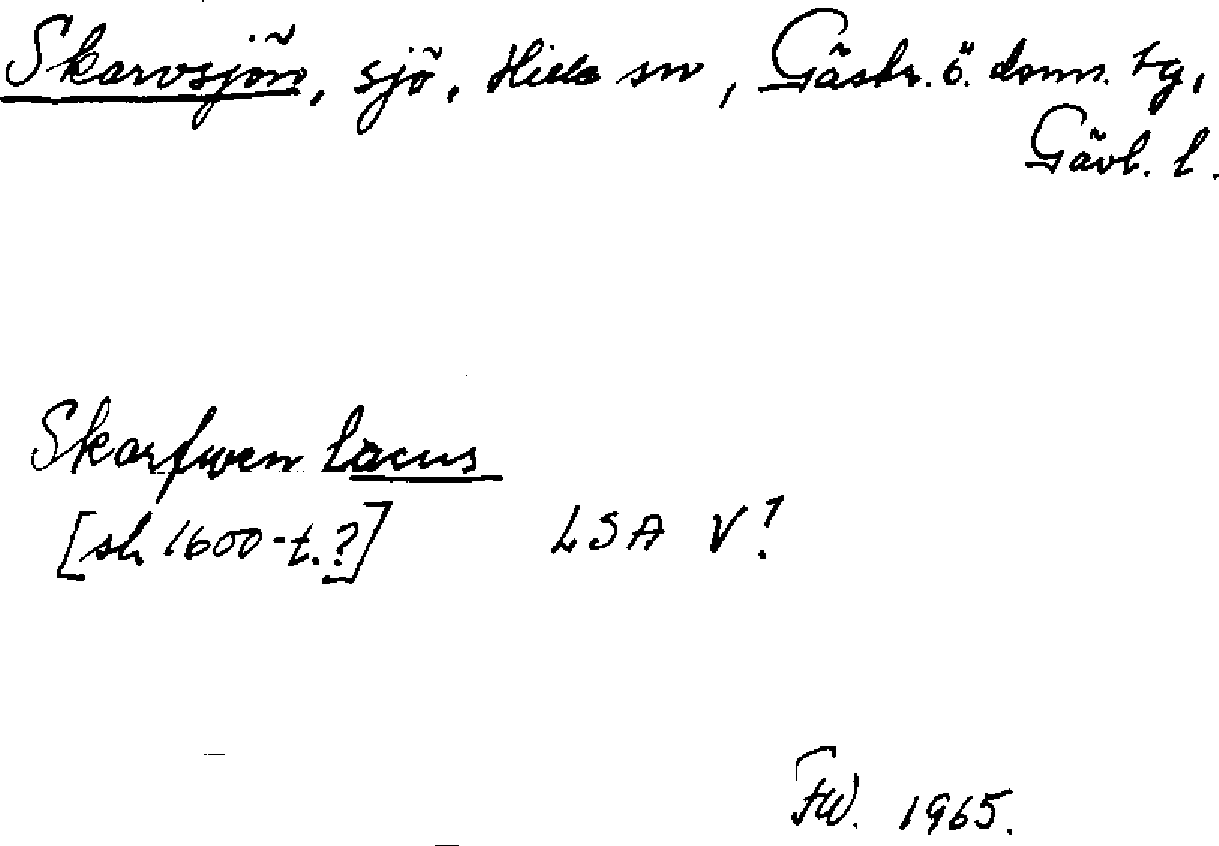 Skarvsjön, sjö, Hille sn, Gästr. ö. doms. tg,
Gävl. l.
Skarfwen lacus
[sl. 1600-t.?] LSA V!
FW. 1965.